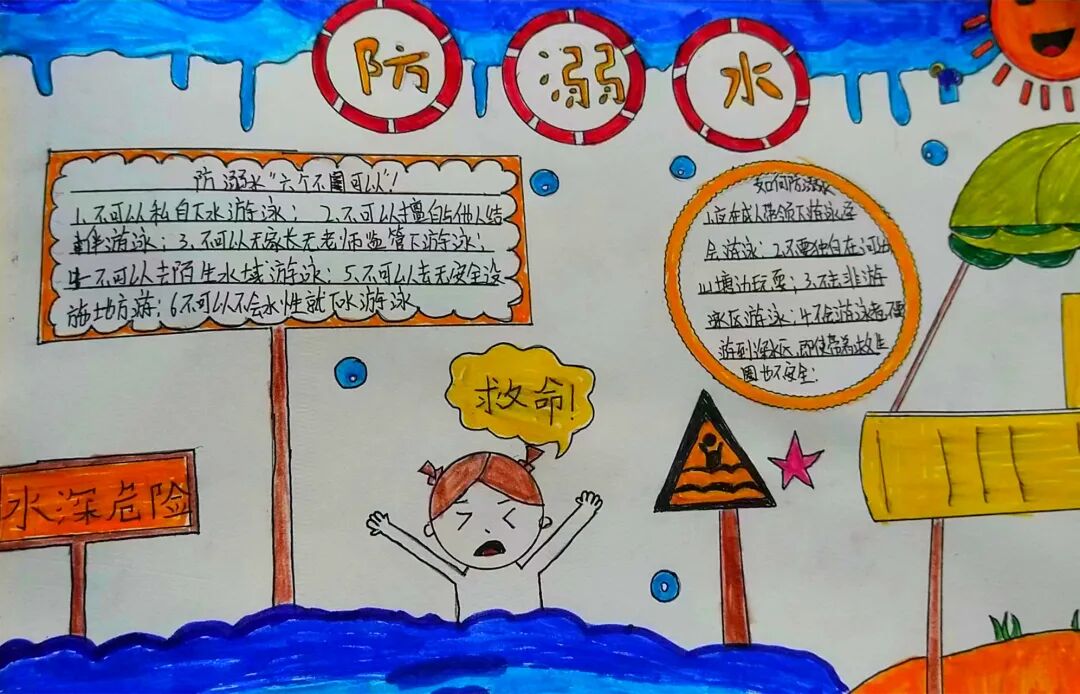 防溺水
防溺水“六个不可以”！
1.不可以私自下水游泳； 2.不可以擅自与他人结
伴游泳；3.不可以无家长无老师监管下游泳；
4.不可以去陌生水域游泳；5.不可以去无安全设
施地方游；6.不可以不会水性就下水游泳
如何防溺水
1.应在成人带领下游泳
全游泳；2.不要独自在河边
山塘边玩耍；3.不去非游
泳区游泳；4.不会游泳者不要
游到深水区，即使带着救生
圈也不安全；
救命！
水深危险